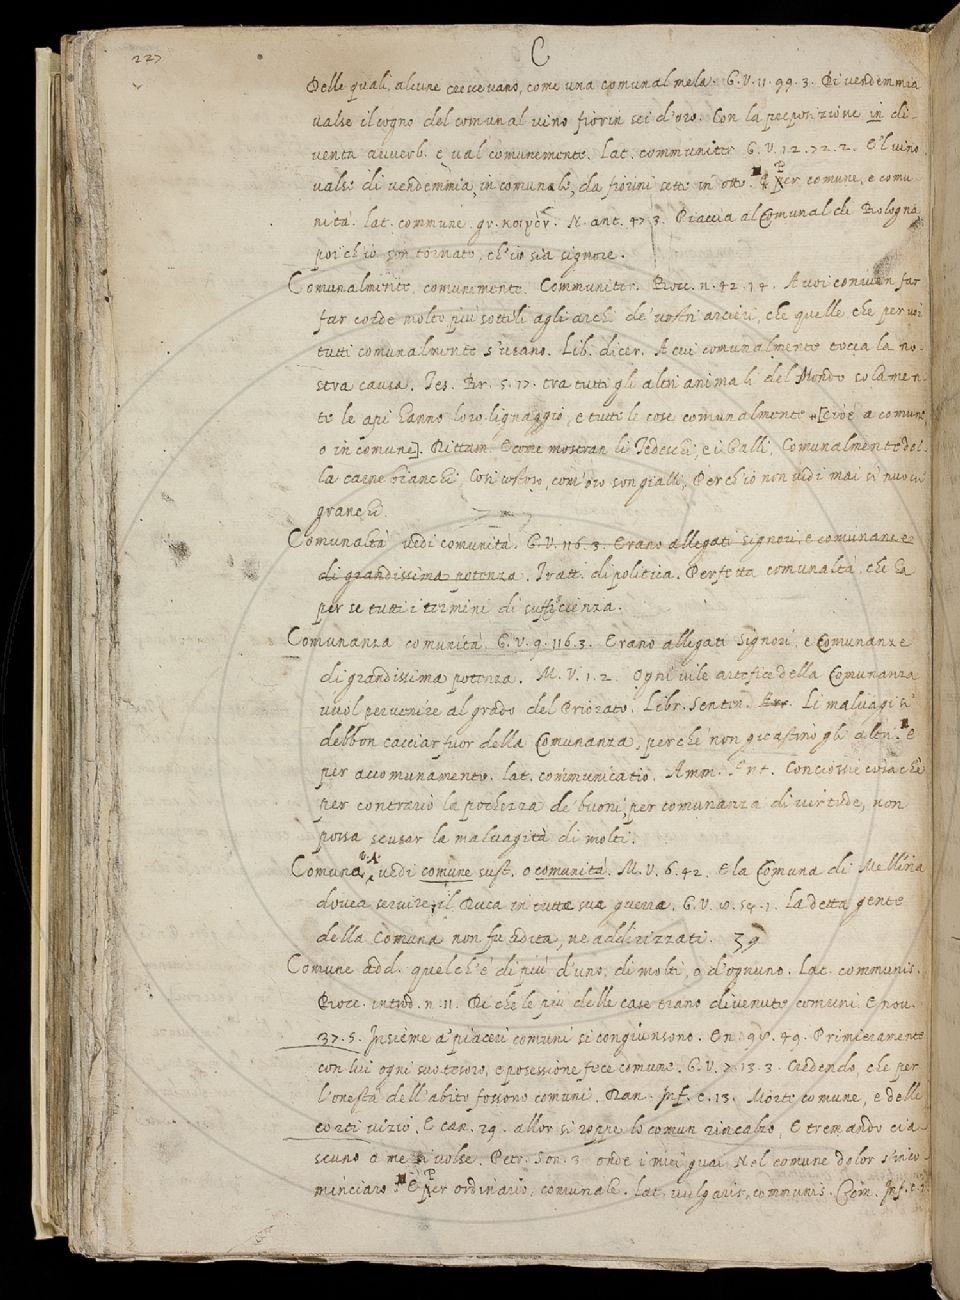 227
C
Delle quali, alcune ceevevano, come una comunal mela. G. V. 11. 99. 3. Di vendemmia
valse il cogno del comunal vino fiorin sei d'oro. Con la preposizione in di-
venta avverb. e val comunemente. Lat. communiter G. V. 12. 72. 2. E'l vino
valse di vendemmia, in comunale, da fiorini sette in otto. ¶ Per comune, e comu-
nità. lat. commune. gr. κοινόν. N. ant. 47 3. Piaccia al Comunal di Bologna
poi ch'io son tornato, ch'io sia signore.
Comunalmente, comunemente. Communiter. Bocc. n. 42. 14. A voi convien far
far corde molto più sottili agli archi de' vostri arcieri, che quelle che per voi
tutti comunalmente s'usano. Lib. dicer. A cui comunalmente tocca la no-
stra causa. Tes. Br. 5. 17. tra tutti gli altri animali del Mondo solamen-
te le api hanno loro lignaggio, e tutte le cose comunalmente [cioè a comune,
o in comune]. Dittam. E come mostran li Tedeschi, e i Galli, Comunalmente del-
la carne bianchi Così costoro, com'oro son gialli, Perch'io non vidi mai sì nuovi
granchi.
Comunaltà vedi comunità. G. V. 116. 3. Erano allegati signori, e comunanze
di grandissima potenza. Tratt. di politica. Perfetta comunaltà, che ha
per se tutti i termini di sufficienza.
Comunanza comunità. G. V. 9. 116. 3. Erano allegati Signori, e Comunanze
di grandissima potenza. M. V. 1. 2. Ogni vile artefice della Comunanza
vuol pervenire al grado del Priorato. Libr. Senten. Li malvagi si
debbon cacciar fuor della Comunanza, perchè non guastino gli altri. E
per accomunamento. lat. communicatio. Amm. Ant. Conciossie cosa che
per contrario la pochezza de' buoni, per comunanza di virtude, non
possa scusar la malvagità di molti.
Comuna vedi comune sust. o comunità. M. V. 6. 42. E la Comuna di Mellina
dovea servire il Duca in tutte sue guerre. G. V. 10. 59. 1. La detta gente
della Comuna non fu udita, ne addirizzati. 39
Comune add. quel ch'è di più d'uno, di molti, o d'ognuno. Lat. communis.
Bocc. introd. n. 11. Di che le più delle case erano divenute comuni. E nov.
37. 5. Insieme a' piaceri comuni si congiunsono. E n. 98. 49. Primieramente
con lui ogni suo tesoro, e posessione fece comune. G. V. 7. 13. 3. Credendo, che per
l'onestà dell'abito fossono comuni. Dan. Inf. c. 13. Morte comune, e delle
corti vizio. E can. 29. allor si roppe lo comun rincalzo, E tremando cia-
scuno a me si volse. Petr. Son. 3 onde i miei guai Nel comune dolor s'inco-
minciaro. E Per ordinario, comunale. Lat. vulgaris, communis. Com. Inf. c. 1